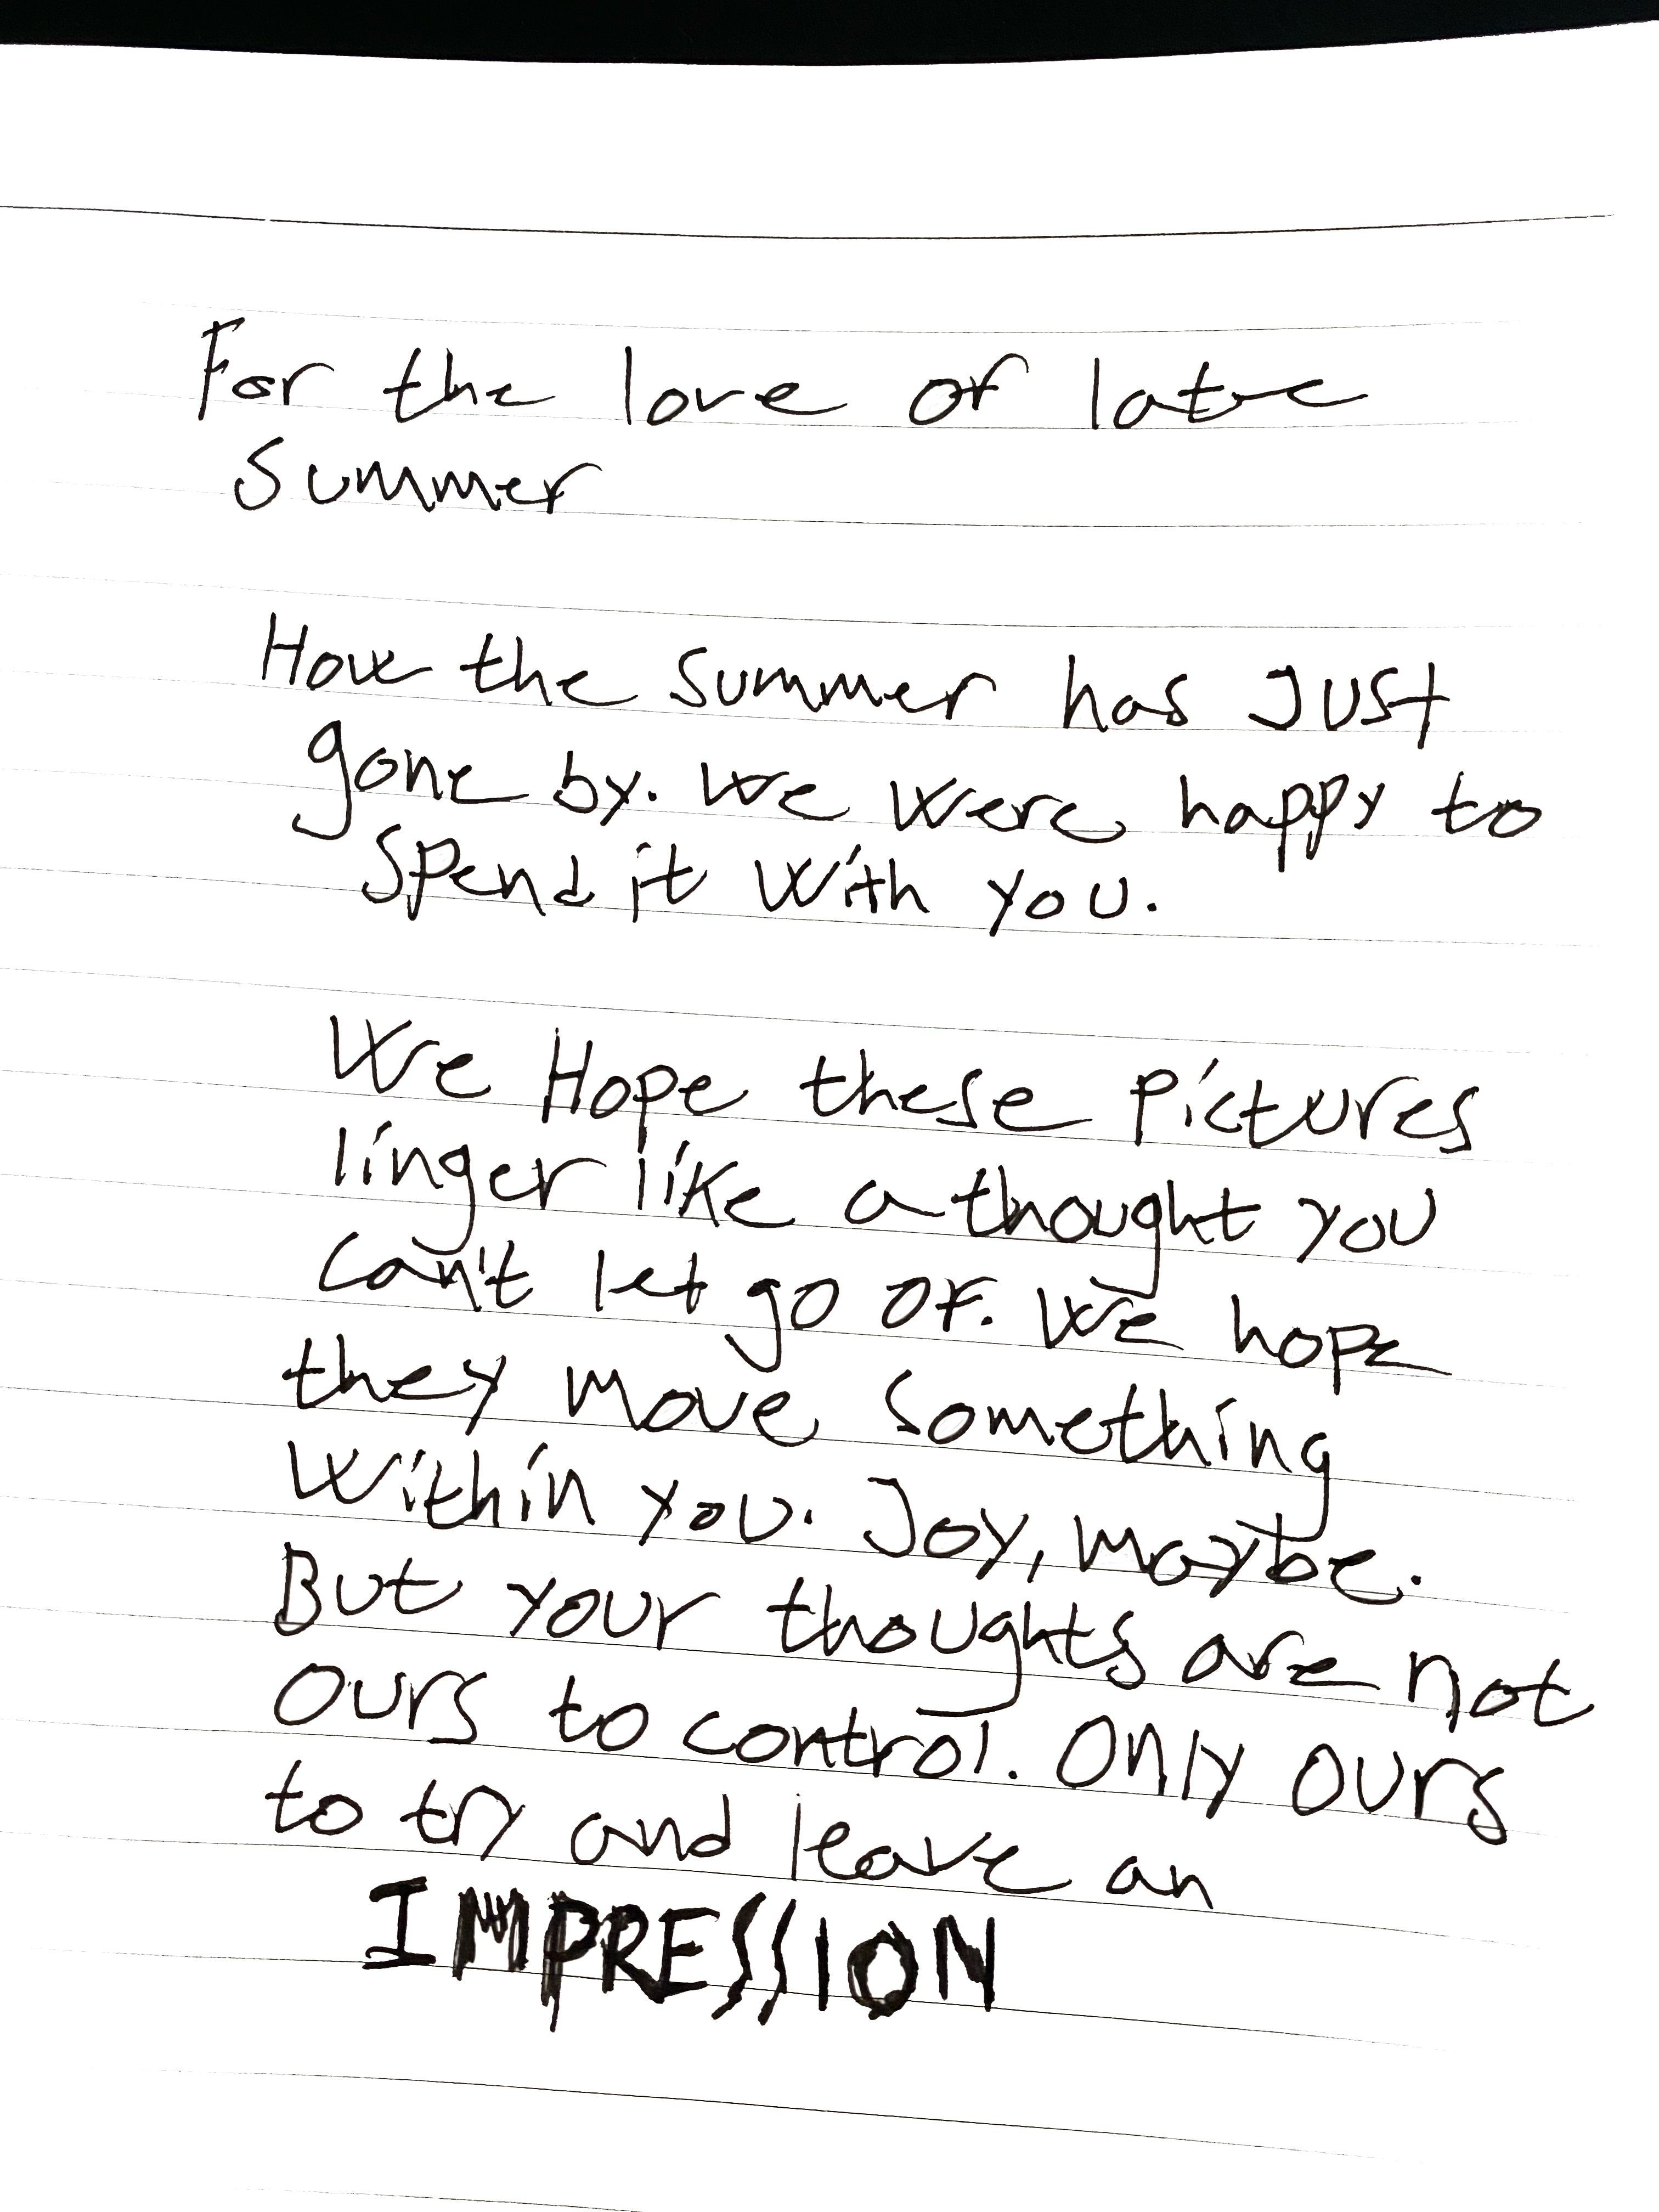 For the love of late
Summer
How the summer has Just
gone by. We were happy to
Spend it with you.
We Hope these pictures
linger like a thought you
can't let go of. We hope
they move something
within you. Joy, maybe.
But your thoughts are not
ours to control. Only ours
to try and leave an
IMPRESSION